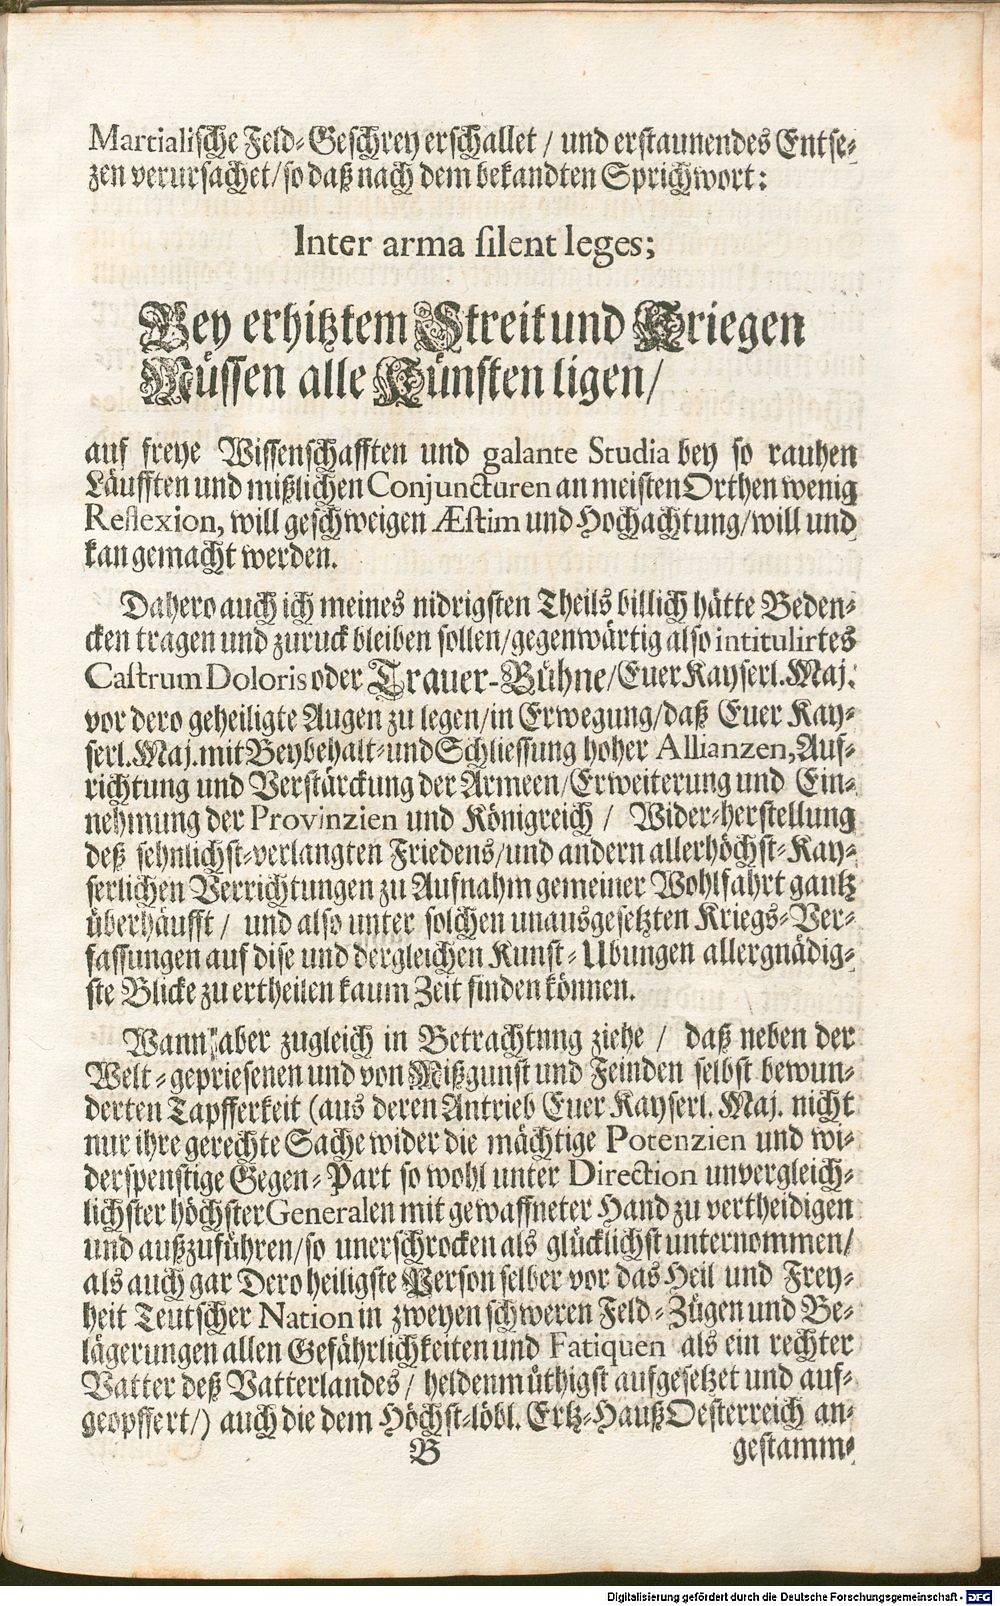 Martialische Feld-Geschrey erschallet / und erstaunendes Entse-
zen verursachet/so daß nach dem bekandten Sprichwort:
Inter arma silent leges;
Bey erhitztem Streit und Kriegen
Müssen alle Künsten ligen/
auf freye Wissenschafften und galante Studia bey so rauhen
Läufften und mißlichen Conjuncturen an meisten Orthen wenig
Reflexion, will geschweigen Æstim und Hochachtung/will und
kan gemacht werden.
Dahero auch ich meines nidrigsten Theils billich hätte Beden-
cken tragen und zuruck bleiben sollen/gegenwärtig also intitulirtes
Castrum Doloris oder Trauer-Bühne/Euer Kayserl. Maj.
vor dero geheiligte Augen zu legen/in Erwegung/daß Euer Kay-
serl. Maj. mit Beybehalt- und Schliessung hoher Allianzen, Auf-
richtung und Verstärckung der Armeen/Erweiterung und Ein-
nehmung der Provinzien und Königreich / Wider-herstellung
deß sehnlichst-verlangten Friedens/und andern allerhöchst-Kay-
serlichen Verrichtungen zu Aufnahm gemeiner Wohlfahrt gantz
überhäufft / und also unter solchen unausgesetzten Kriegs-Ver-
fassungen auf dise und dergleichen Kunst-Ubungen allergnädig-
ste Blicke zu ertheilen kaum Zeit finden können.
Wann aber zugleich in Betrachtung ziehe / daß neben der
Welt-gepriesenen und von Mißgunst und Feinden selbst bewun-
derten Tapfferkeit (aus deren Antrieb Euer Kayserl. Maj. nicht
nur ihre gerechte Sache wider die mächtige Potenzien und wi-
derspenstige Gegen-Part so wohl unter Direction unvergleich-
lichster höchster Generalen mit gewaffneter Hand zu vertheidigen
und außzuführen/so unerschrocken als glücklichst unternommen/
als auch gar Dero heiligste Person selber vor das Heil und Frey-
heit Teutscher Nation in zweyen schweren Feld-Zügen und Be-
lägerungen allen Gefährlichkeiten und Fatiquen als ein rechter
Vatter deß Vatterlandes / heldenmüthigst aufgesetzet und auf-
geopffert/) auch die dem Höchst-löbl. Ertz-Hauß Oesterreich an-
B gestamm-
Digitalisierung gefördert durch die Deutsche Forschungsgemeinschaft - DFG